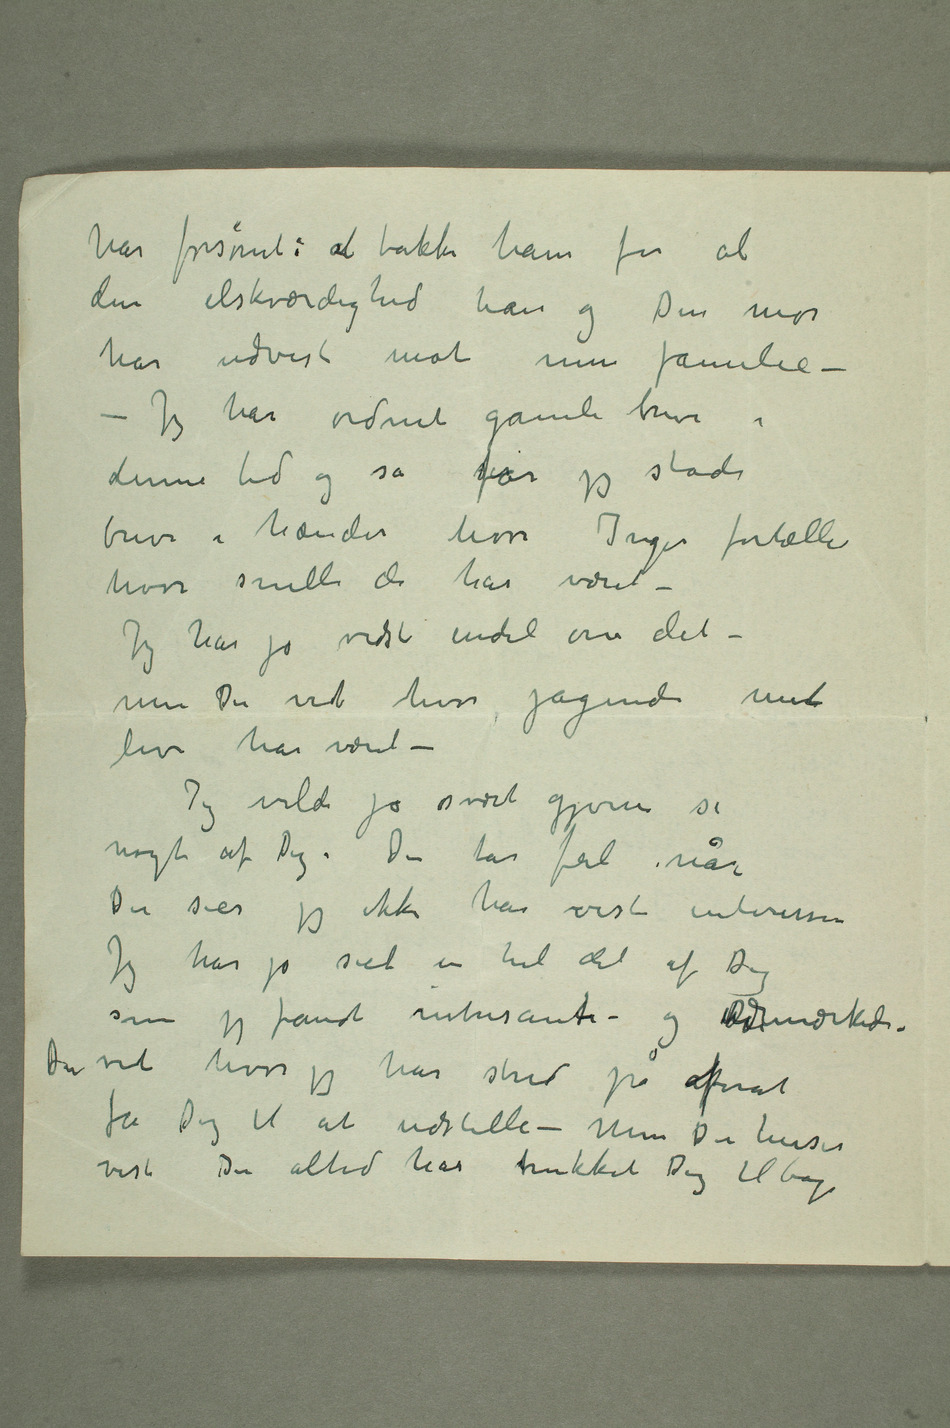 har forsømt i at takke ham for al
den elskværdighed han og Din mor
har udvist mot min familie –
– Jeg har ordnet gamle breve i
denne tid og så får jeg stadi
breve i hænder hvor Inger fortæller
hvor snille de har været –
Jeg har jo vidst endel om det –
men Du ved hvor jagende mit
liv har været –
Jeg vilde jo svært gjerne se
noget af Dig. Du tar feil når
Du sier jeg ikke har vist interesse
Jeg har jo seet en hel del af Dig
som jeg fandt intresante – og udmærkede.
Du ved hvor jeg har stred på forat
få Dig til at udstille – Men Du husker
vist Du altid har trukket Dig tilbage